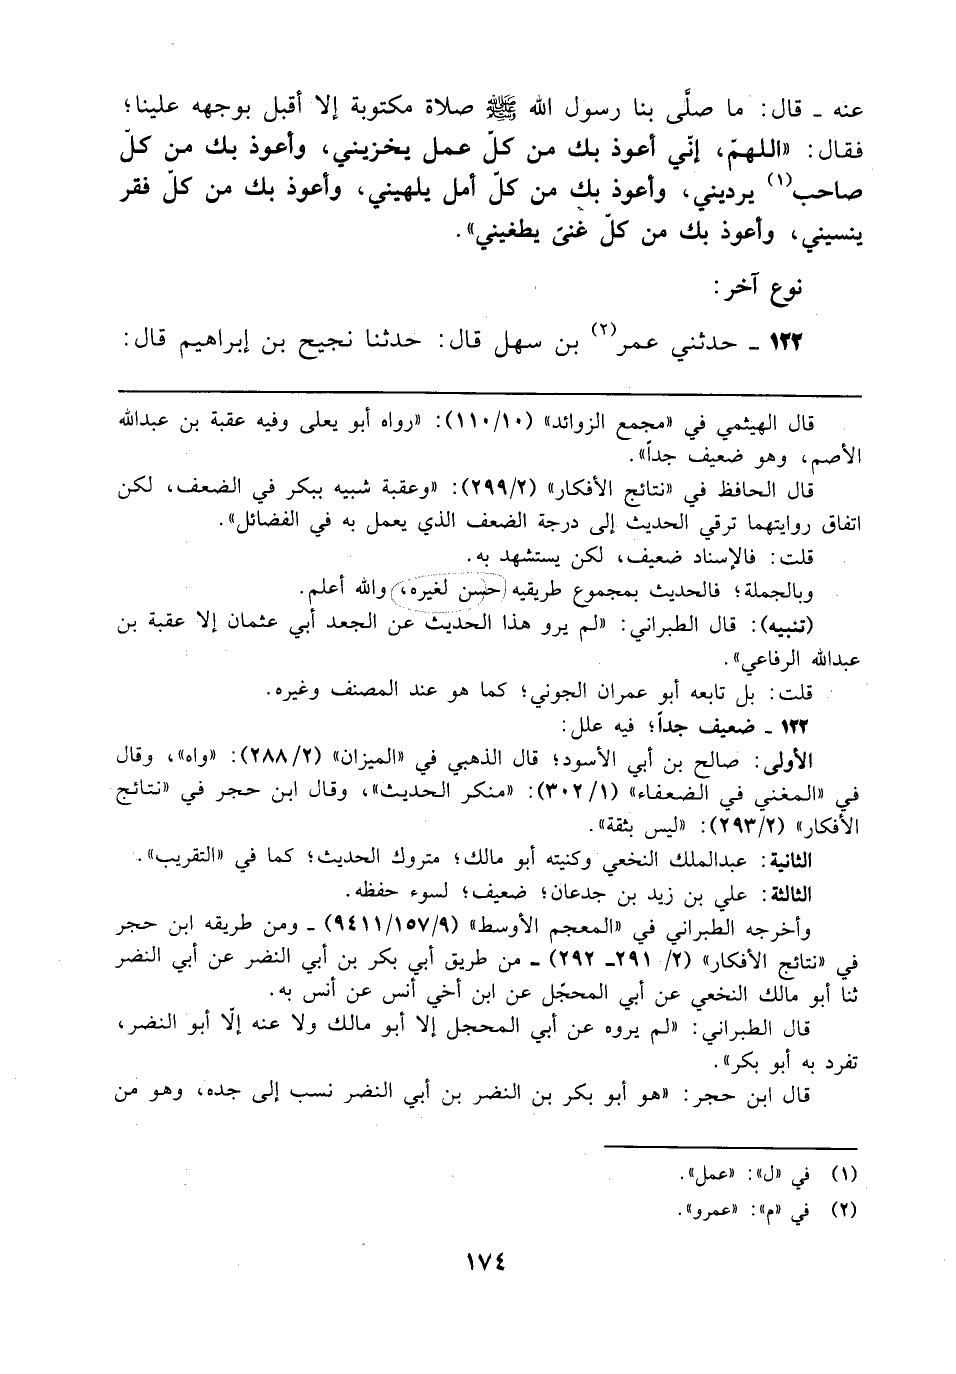 عنه ـ قال: ما صلَّى بنا رسول الله ﷺ صلاة مكتوبة إلا أقبل بوجهه علينا؛
فقال: «اللهمّ، إنّي أعوذ بك من كلّ عمل يخزيني، وأعوذ بك من كلّ
صاحب(١) يرديني، وأعوذ بك من كلّ أمل يلهيني، وأعوذ بك من كلّ فقر
ينسيني، وأعوذ بك من كلّ غنىً يطغيني».
نوع آخر:
١٢٢ ـ حدثني عمر(٢) بن سهل قال: حدثنا نجيح بن إبراهيم قال:
قال الهيثمي في «مجمع الزوائد» (١١٠/١٠): «رواه أبو يعلى وفيه عقبة بن عبدالله
الأصم، وهو ضعيف جداً».
قال الحافظ في «نتائج الأفكار» (٢٩٩/٢): «وعقبة شبيه ببكر في الضعف، لكن
اتفاق روايتهما ترقي الحديث إلى درجة الضعف الذي يعمل به في الفضائل».
قلت: فالإسناد ضعيف، لكن يستشهد به.
وبالجملة؛ فالحديث بمجموع طريقيه حسن لغيره، والله أعلم.
(تنبيه): قال الطبراني: «لم يرو هذا الحديث عن الجعد أبي عثمان إلا عقبة بن
عبدالله الرفاعي».
قلت: بل تابعه أبو عمران الجوني؛ كما هو عند المصنف وغيره.
١٢٢ ـ ضعيف جداً؛ فيه علل:
الأولى: صالح بن أبي الأسود؛ قال الذهبي في «الميزان» (٢٨٨/٢): «واه»، وقال
في «المغني في الضعفاء» (٣٠٢/١): «منكر الحديث»، وقال ابن حجر في «نتائج
الأفكار» (٢٩٣/٢): «ليس بثقة».
الثانية: عبدالملك النخعي وكنيته أبو مالك؛ متروك الحديث؛ كما في «التقريب».
الثالثة: علي بن زيد بن جدعان؛ ضعيف؛ لسوء حفظه.
وأخرجه الطبراني في «المعجم الأوسط» (٩٤١١/١٥٧/٩) ـ ومن طريقه ابن حجر
في «نتائج الأفكار» (٢/ ٢٩١ـ ٢٩٢) ـ من طريق أبي بكر بن أبي النضر عن أبي النضر
ثنا أبو مالك النخعي عن أبي المحجّل عن ابن أخي أنس عن أنس به.
قال الطبراني: «لم يروه عن أبي المحجل إلا أبو مالك ولا عنه إلّا أبو النضر،
تفرد به أبو بكر».
قال ابن حجر: «هو أبو بكر بن النضر بن أبي النضر نسب إلى جده، وهو من
(١) في «ل»: «عمل».
(٢) في «م»: «عمرو».
١٧٤